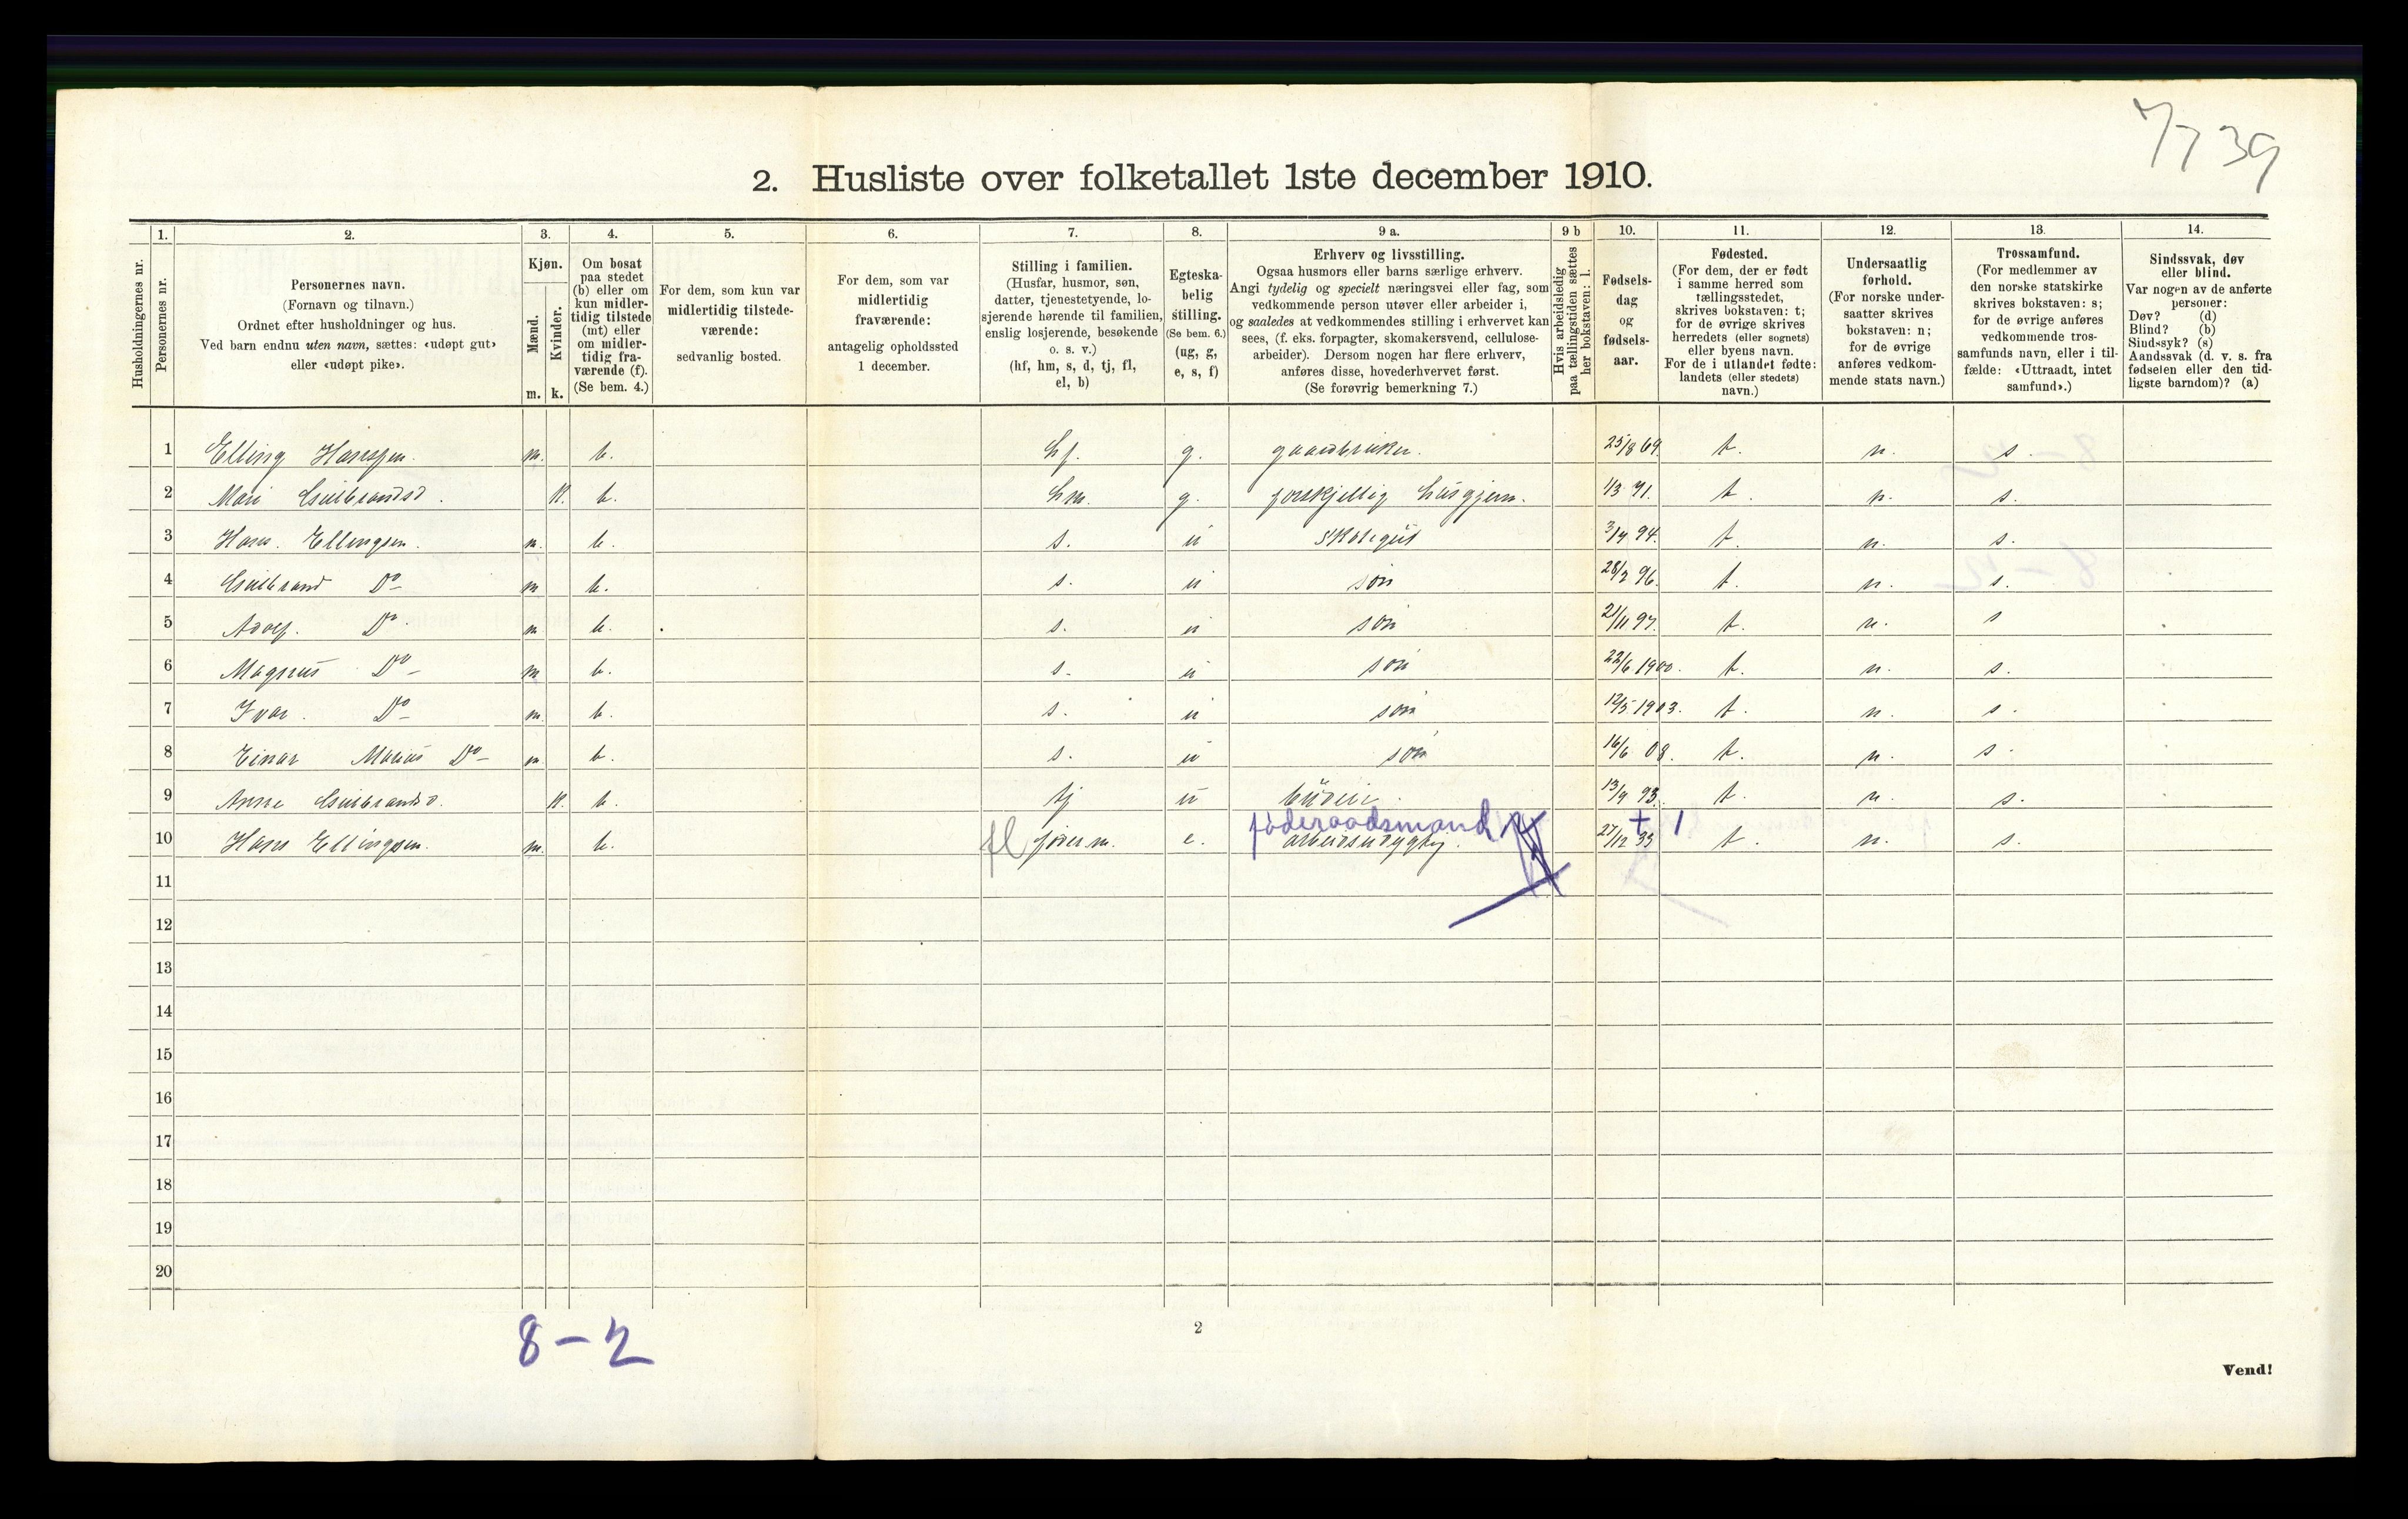 7739
2. Husliste over folketallet 1ste december 1910.
1. 2. 3. 4. 5. 6. 7. 8. 9 a. 9 b 10. 11. 12. 13. 14.
Husholdningernes nr.
Personernes nr.
Personernes navn.
(Fornavn og tilnavn.)
Ordnet efter husholdninger og hus.
Ved barn endnu uten navn, sættes: «udøpt gut»
eller «udøpt pike».
Kjøn.
Mænd.
Kvinder.
m. k.
Om bosat
paa stedet
(b) eller om
kun midler-
tidig tilstede
(mt) eller
om midler-
tidig fra-
værende (f).
(Se bem. 4.)
For dem, som kun var
midlertidig tilstede-
værende:
sedvanlig bosted.
For dem, som var
midlertidig
fraværende:
antagelig opholdssted
1 december.
Stilling i familien.
(Husfar, husmor, søn,
datter, tjenestetyende, lo-
sjerende hørende til familien,
enslig losjerende, besøkende
o. s. v.)
(hf, hm, s, d, tj, fl,
el, b)
Egteska-
belig
stilling.
(Se bem. 6.)
(ug, g,
e, s, f)
Erhverv og livsstilling.
Ogsaa husmors eller barns særlige erhverv.
Angi tydelig og specielt næringsvei eller fag, som
vedkommende person utøver eller arbeider i,
og saaledes at vedkommendes stilling i erhvervet kan
sees, (f. eks. forpagter, skomakersvend, cellulose-
arbeider). Dersom nogen har flere erhverv,
anføres disse, hovederhvervet først.
(Se forøvrig bemerkning 7.)
Hvis arbeidsledig
paa tællingstiden sættes
her bokstaven: l.
Fødsels-
dag
og
fødsels-
aar.
Fødested.
(For dem, der er født
i samme herred som
tællingsstedet,
skrives bokstaven: t;
for de øvrige skrives
herredets (eller sognets)
eller byens navn.
For de i utlandet fødte:
landets (eller stedets)
navn.)
Undersaatlig
forhold.
(For norske under-
saatter skrives
bokstaven: n;
for de øvrige
anføres vedkom-
mende stats navn.)
Trossamfund.
(For medlemmer av
den norske statskirke
skrives bokstaven: s;
for de øvrige anføres
vedkommende tros-
samfunds navn, eller i til-
fælde: «Uttraadt, intet
samfund».)
Sindssvak, døv
eller blind.
Var nogen av de anførte
personer:
Døv? (d)
Blind? (b)
Sindssyk? (s)
Aandssvak (d. v. s. fra
fødselen eller den tid-
ligste barndom)? (a)
1 Elling Hanssen. m. b. hf. g. gaardbruker. 25/8 69. t. n. s.
2 Mari Gulbrandsd. k. b. hm. g. forskjellig husgjern. 1/3 71. t. n. s.
3 Hans. Ellingsen. m. b. s. u skolegut 3/9 94. t. n. s.
4 Gulbrand Do m b. s. u søn 28/2 96. t. n. s.
5 Adolf. Do m b. s. u søn 21/11 97. t. n. s
6 Magnus Do m b. s. u søn 22/6 1900. t. n. s.
7 Ivar. Do m. b. s. u søn 12/5 1903. t. n. s.
8 Einar Marius Do m. b. s. u søn 16/6 08. t. n. s.
9 Anne Gulbrandsd. k. b. tj u budeie. 13/9 93. t. n. s.
føderaadsmand + 1
10 Hans Ellingsen. m. b. fl føderm. e. arbeidsudygtig. 27/12 33 t. n. s.
11
12
13
14
15
16
17
18
19
20
8 - 2
2
Vend!